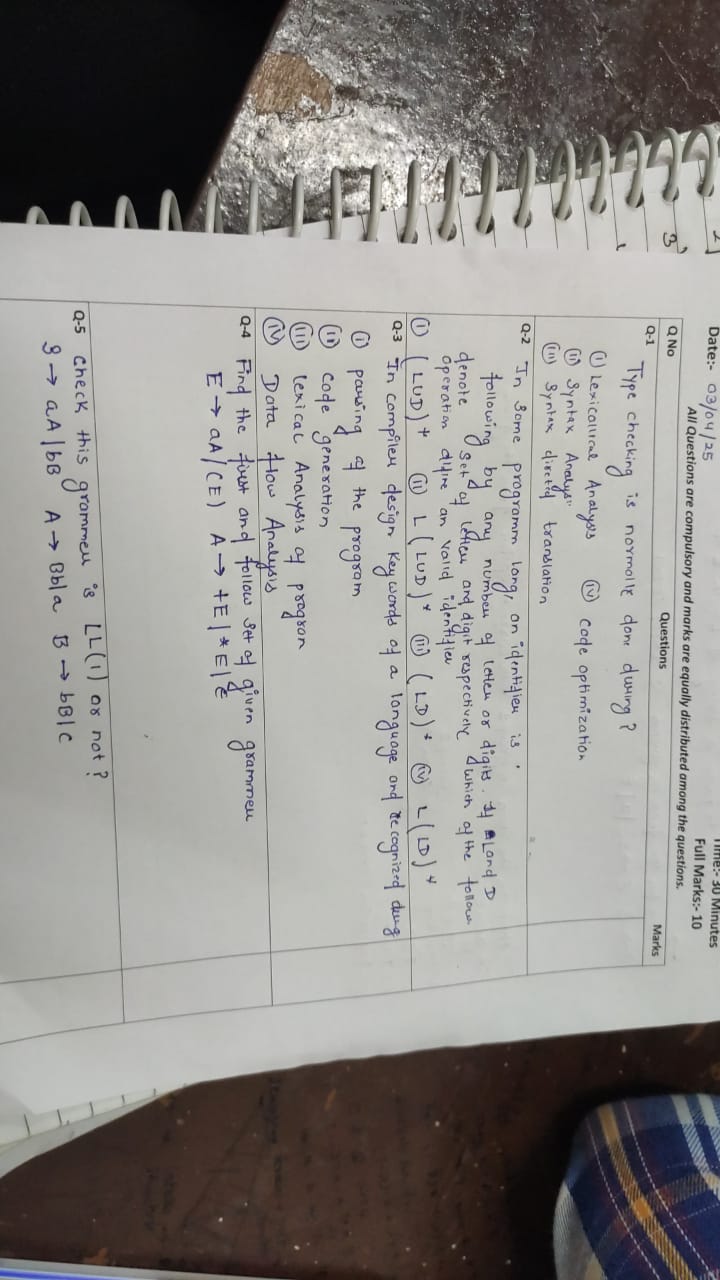 Date:- 03/04/25
Time:- 30 Minutes
Full Marks:- 10
All Questions are compulsory and marks are equally distributed among the questions.
Q No Questions Marks
Q-1
Type checking is normolly done during?
(i) Lexicallical Analysis (iv) code optimization
(ii) Syntax Analys
(iii) Syntax directed translation
Q-2 In some programm lang, an identifier is
following by any number of letter or digits. If L and D
denote set of letters and digit respectively which of the follow
operation difine an valid identifier
(i) (LUD)+ (ii) L(LUD)* (iii) (LD)* (iv) L(LD)*
Q-3 In compiler design keywords of a language and recognized dung
(i) parsing of the program
(ii) code generation
(iii) lexical Analysis of progron
(iv) Data flow Analysis
Q-4 Find the first and follow set of given grammer
E → aA/(E) A → +E|*E|ε
Q-5 check this grammer is LL(1) or not?
S → aA|bB A → Bb|a B → bB|c